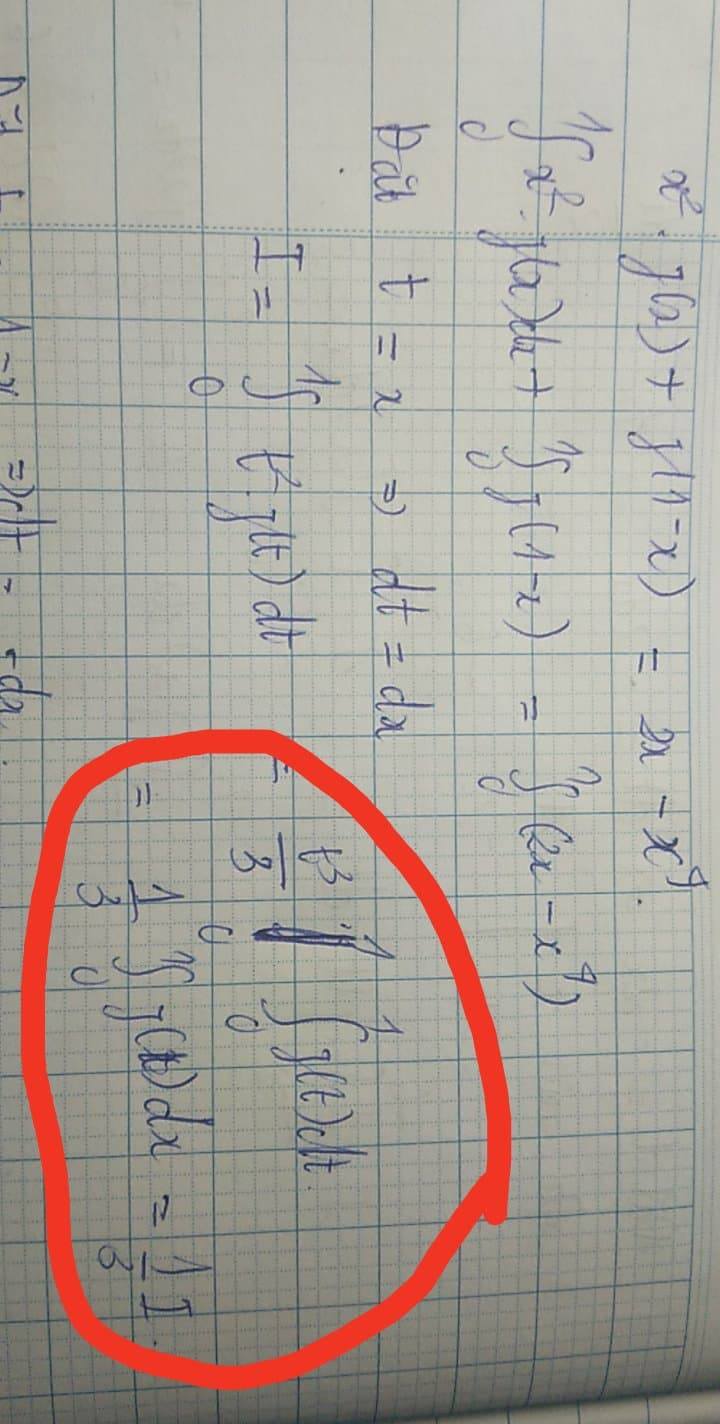 x². f(x) + f(1-x) = 2x - x⁴.
∫₀¹ x². f(x)dx + ∫₀¹ f(1-x) = ∫₀¹ (2x - x⁴)
Đặt t = x => dt = dx
I = ∫₀¹ t². f(t) dt = t³/3 |₀¹ . ∫₀¹ f(t)dt.
= 1/3 ∫₀¹ f(x) dx = 1/3 I.
1-x => dt = -dx.